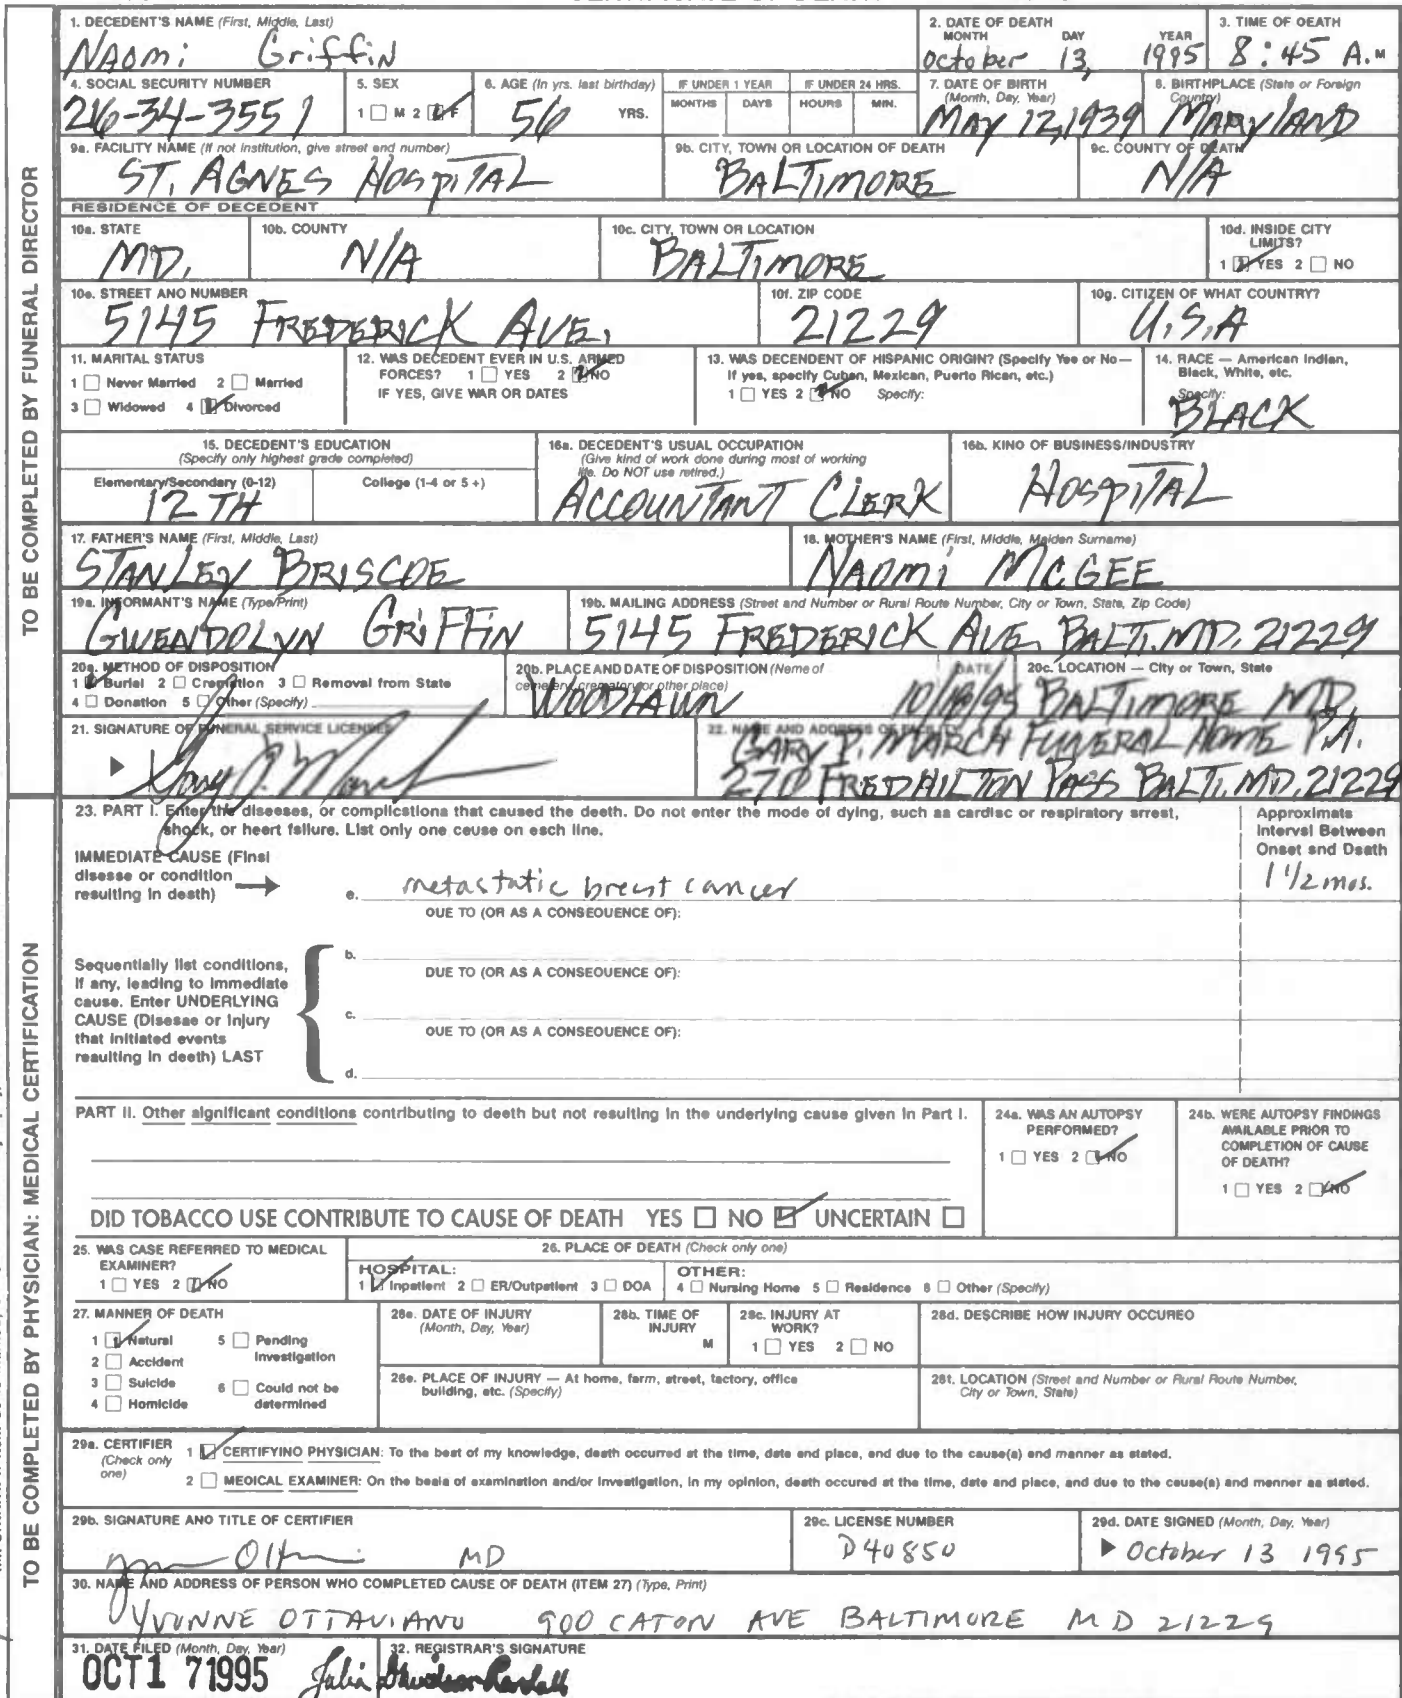 1. DECEDENT'S NAME (First, Middle, Last)
NAOMI Griffin
2. DATE OF DEATH
MONTH DAY YEAR
October 13, 1995
3. TIME OF DEATH
8:45 A.M
4. SOCIAL SECURITY NUMBER
216-34-3551
5. SEX
1 M 2 F
6. AGE (In yrs. last birthday)
56 YRS.
IF UNDER 1 YEAR
MONTHS DAYS
IF UNDER 24 HRS.
HOURS MIN.
7. DATE OF BIRTH
(Month, Day, Year)
MAY 12, 1939
8. BIRTHPLACE (State or Foreign
Country)
MARYLAND
9a. FACILITY NAME (If not institution, give street and number)
ST. AGNES HOSPITAL
9b. CITY, TOWN OR LOCATION OF DEATH
BALTIMORE
9c. COUNTY OF DEATH
N/A
RESIDENCE OF DECEDENT
10a. STATE
MD.
10b. COUNTY
N/A
10c. CITY, TOWN OR LOCATION
BALTIMORE
10d. INSIDE CITY
LIMITS?
1 YES 2 NO
10e. STREET AND NUMBER
5145 FREDERICK AVE.
10f. ZIP CODE
21229
10g. CITIZEN OF WHAT COUNTRY?
U.S.A
11. MARITAL STATUS
1 Never Married 2 Married
3 Widowed 4 Divorced
12. WAS DECEDENT EVER IN U.S. ARMED
FORCES? 1 YES 2 NO
IF YES, GIVE WAR OR DATES
13. WAS DECENDENT OF HISPANIC ORIGIN? (Specify Yes or No—
If yes, specify Cuban, Mexican, Puerto Rican, etc.)
1 YES 2 NO Specify:
14. RACE — American Indian,
Black, White, etc.
Specify:
BLACK
15. DECEDENT'S EDUCATION
(Specify only highest grade completed)
Elementary/Secondary (0-12)
12TH
College (1-4 or 5 +)
16a. DECEDENT'S USUAL OCCUPATION
(Give kind of work done during most of working
life. Do NOT use retired.)
ACCOUNTANT CLERK
16b. KIND OF BUSINESS/INDUSTRY
HOSPITAL
17. FATHER'S NAME (First, Middle, Last)
STANLEY BRISCOE
18. MOTHER'S NAME (First, Middle, Maiden Surname)
NAOMI MCGEE
19a. INFORMANT'S NAME (Type/Print)
GWENDOLYN GRIFFIN
19b. MAILING ADDRESS (Street and Number or Rural Route Number, City or Town, State, Zip Code)
5145 FREDERICK AVE. BALTI. MD. 21229
20a. METHOD OF DISPOSITION
1 Burial 2 Cremation 3 Removal from State
4 Donation 5 Other (Specify)
20b. PLACE AND DATE OF DISPOSITION (Name of
cemetery, crematory or other place)
DATE
WOODLAWN 10/18/95
20c. LOCATION — City or Town, State
BALTIMORE MD.
21. SIGNATURE OF FUNERAL SERVICE LICENSEE
Gary P. March
22. NAME AND ADDRESS OF FACILITY
GARY P. MARCH FUNERAL HOME P.A.
270 FREDHILTON PASS BALTI. MD. 21229
TO BE COMPLETED BY FUNERAL DIRECTOR
23. PART I. Enter the diseases, or complications that caused the death. Do not enter the mode of dying, such as cardiac or respiratory arrest,
shock, or heart failure. List only one cause on each line.
Approximate
Interval Between
Onset and Death
IMMEDIATE CAUSE (Final
disease or condition
resulting in death)
a. metastatic breast cancer
1 1/2 mos.
DUE TO (OR AS A CONSEQUENCE OF):
b.
DUE TO (OR AS A CONSEQUENCE OF):
c.
DUE TO (OR AS A CONSEQUENCE OF):
d.
Sequentially list conditions,
if any, leading to immediate
cause. Enter UNDERLYING
CAUSE (Disease or injury
that initiated events
resulting in death) LAST
PART II. Other significant conditions contributing to death but not resulting in the underlying cause given in Part I.
24a. WAS AN AUTOPSY
PERFORMED?
1 YES 2 NO
24b. WERE AUTOPSY FINDINGS
AVAILABLE PRIOR TO
COMPLETION OF CAUSE
OF DEATH?
1 YES 2 NO
DID TOBACCO USE CONTRIBUTE TO CAUSE OF DEATH YES NO UNCERTAIN
25. WAS CASE REFERRED TO MEDICAL
EXAMINER?
1 YES 2 NO
26. PLACE OF DEATH (Check only one)
HOSPITAL:
1 Inpatient 2 ER/Outpatient 3 DOA
OTHER:
4 Nursing Home 5 Residence 6 Other (Specify)
27. MANNER OF DEATH
1 Natural 5 Pending
Investigation
2 Accident
3 Suicide 6 Could not be
determined
4 Homicide
28a. DATE OF INJURY
(Month, Day, Year)
28b. TIME OF
INJURY
M
28c. INJURY AT
WORK?
1 YES 2 NO
28d. DESCRIBE HOW INJURY OCCURED
28e. PLACE OF INJURY — At home, farm, street, factory, office
building, etc. (Specify)
28f. LOCATION (Street and Number or Rural Route Number,
City or Town, State)
29a. CERTIFIER
(Check only
one)
1 CERTIFYING PHYSICIAN: To the best of my knowledge, death occurred at the time, date and place, and due to the cause(s) and manner as stated.
2 MEDICAL EXAMINER: On the basis of examination and/or investigation, in my opinion, death occured at the time, date and place, and due to the cause(s) and manner as stated.
29b. SIGNATURE AND TITLE OF CERTIFIER
MD
29c. LICENSE NUMBER
D40850
29d. DATE SIGNED (Month, Day, Year)
October 13 1995
30. NAME AND ADDRESS OF PERSON WHO COMPLETED CAUSE OF DEATH (ITEM 27) (Type, Print)
YVONNE OTTAVIANO 900 CATON AVE BALTIMORE MD 21229
31. DATE FILED (Month, Day, Year)
OCT 1 7 1995
32. REGISTRAR'S SIGNATURE
Julia Davidson-Randall
TO BE COMPLETED BY PHYSICIAN: MEDICAL CERTIFICATION